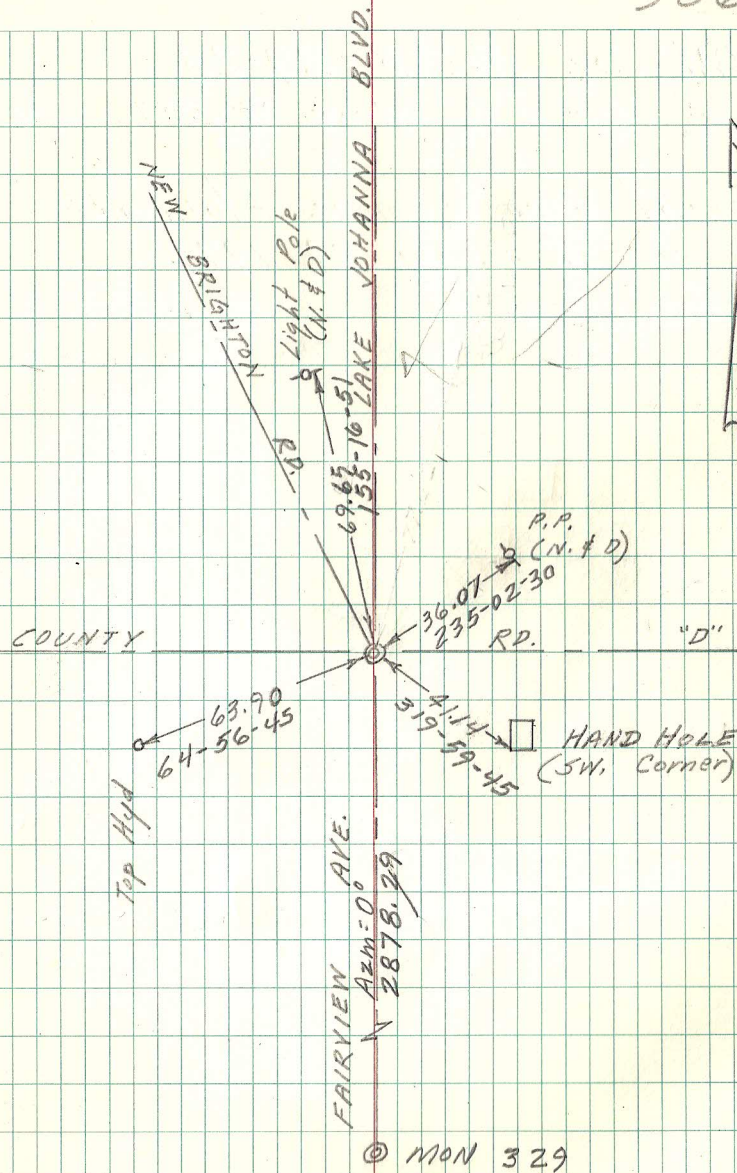 LAKE JOHANNA BLVD.
NEW BRIGHTON RD.
Light Pole
(N. & D)
69.65
155-16-51
P.P.
(N. & D)
36.07
235-02-30
COUNTY RD. "D"
63.90
64-56-45
Top Hyd
41.14
319-59-45
HAND HOLE
(SW. Corner)
FAIRVIEW AVE.
Azm=0°
2878.29
MON 329